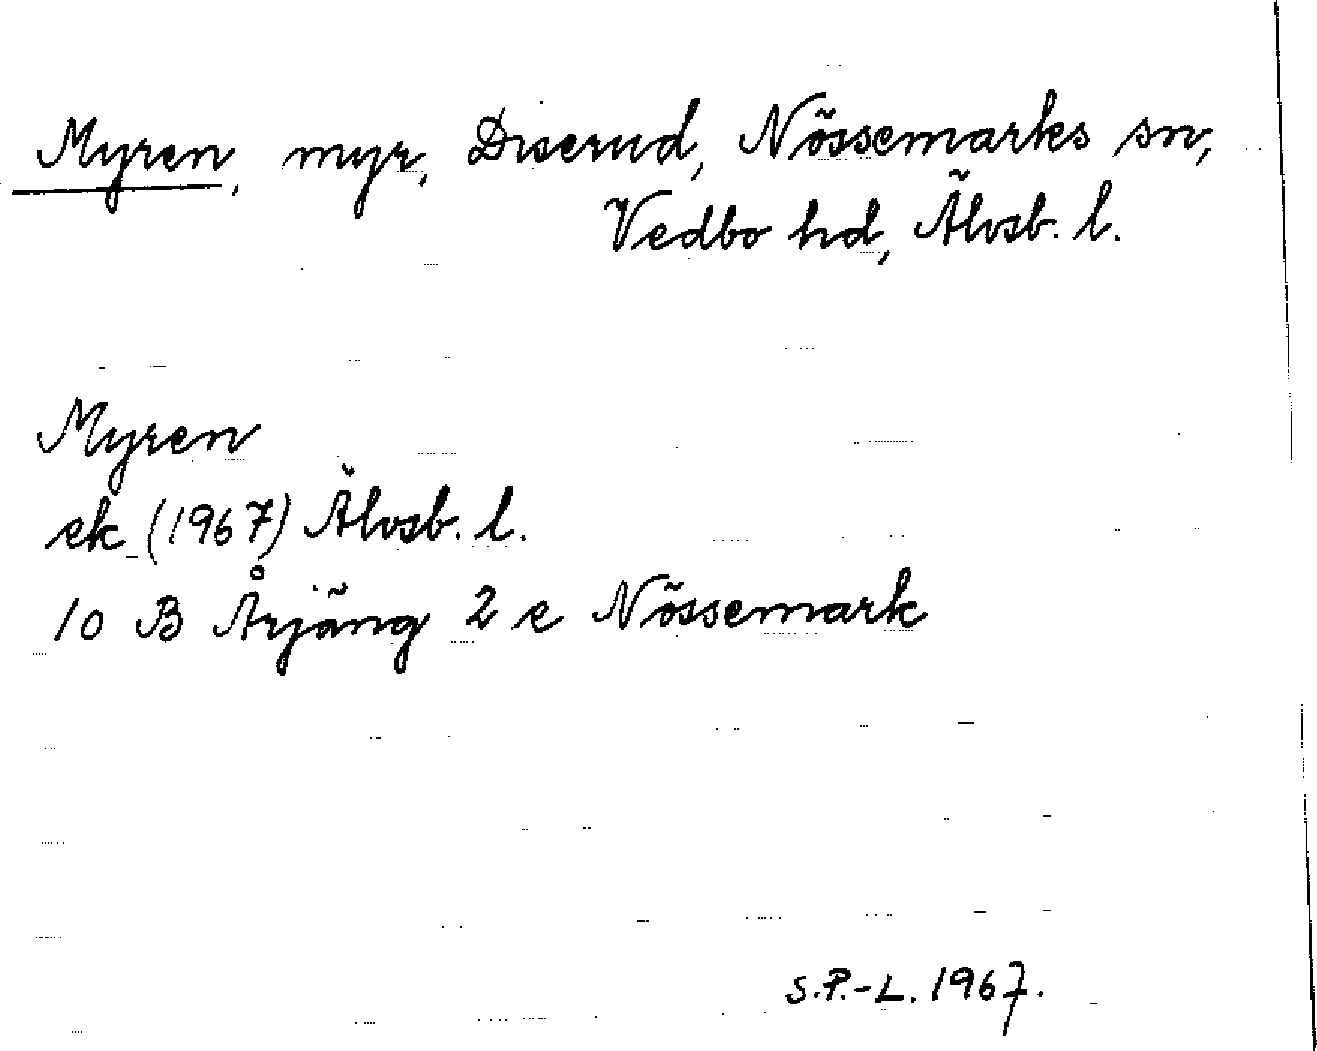 Myren, myr, Diserud, Nössemarks sn,
Vedbo hd, Älvsb. l.
Myren
ek (1967) Älvsb. l.
10 B Årjäng 2 e Nössemark
S.P.-L. 1967.